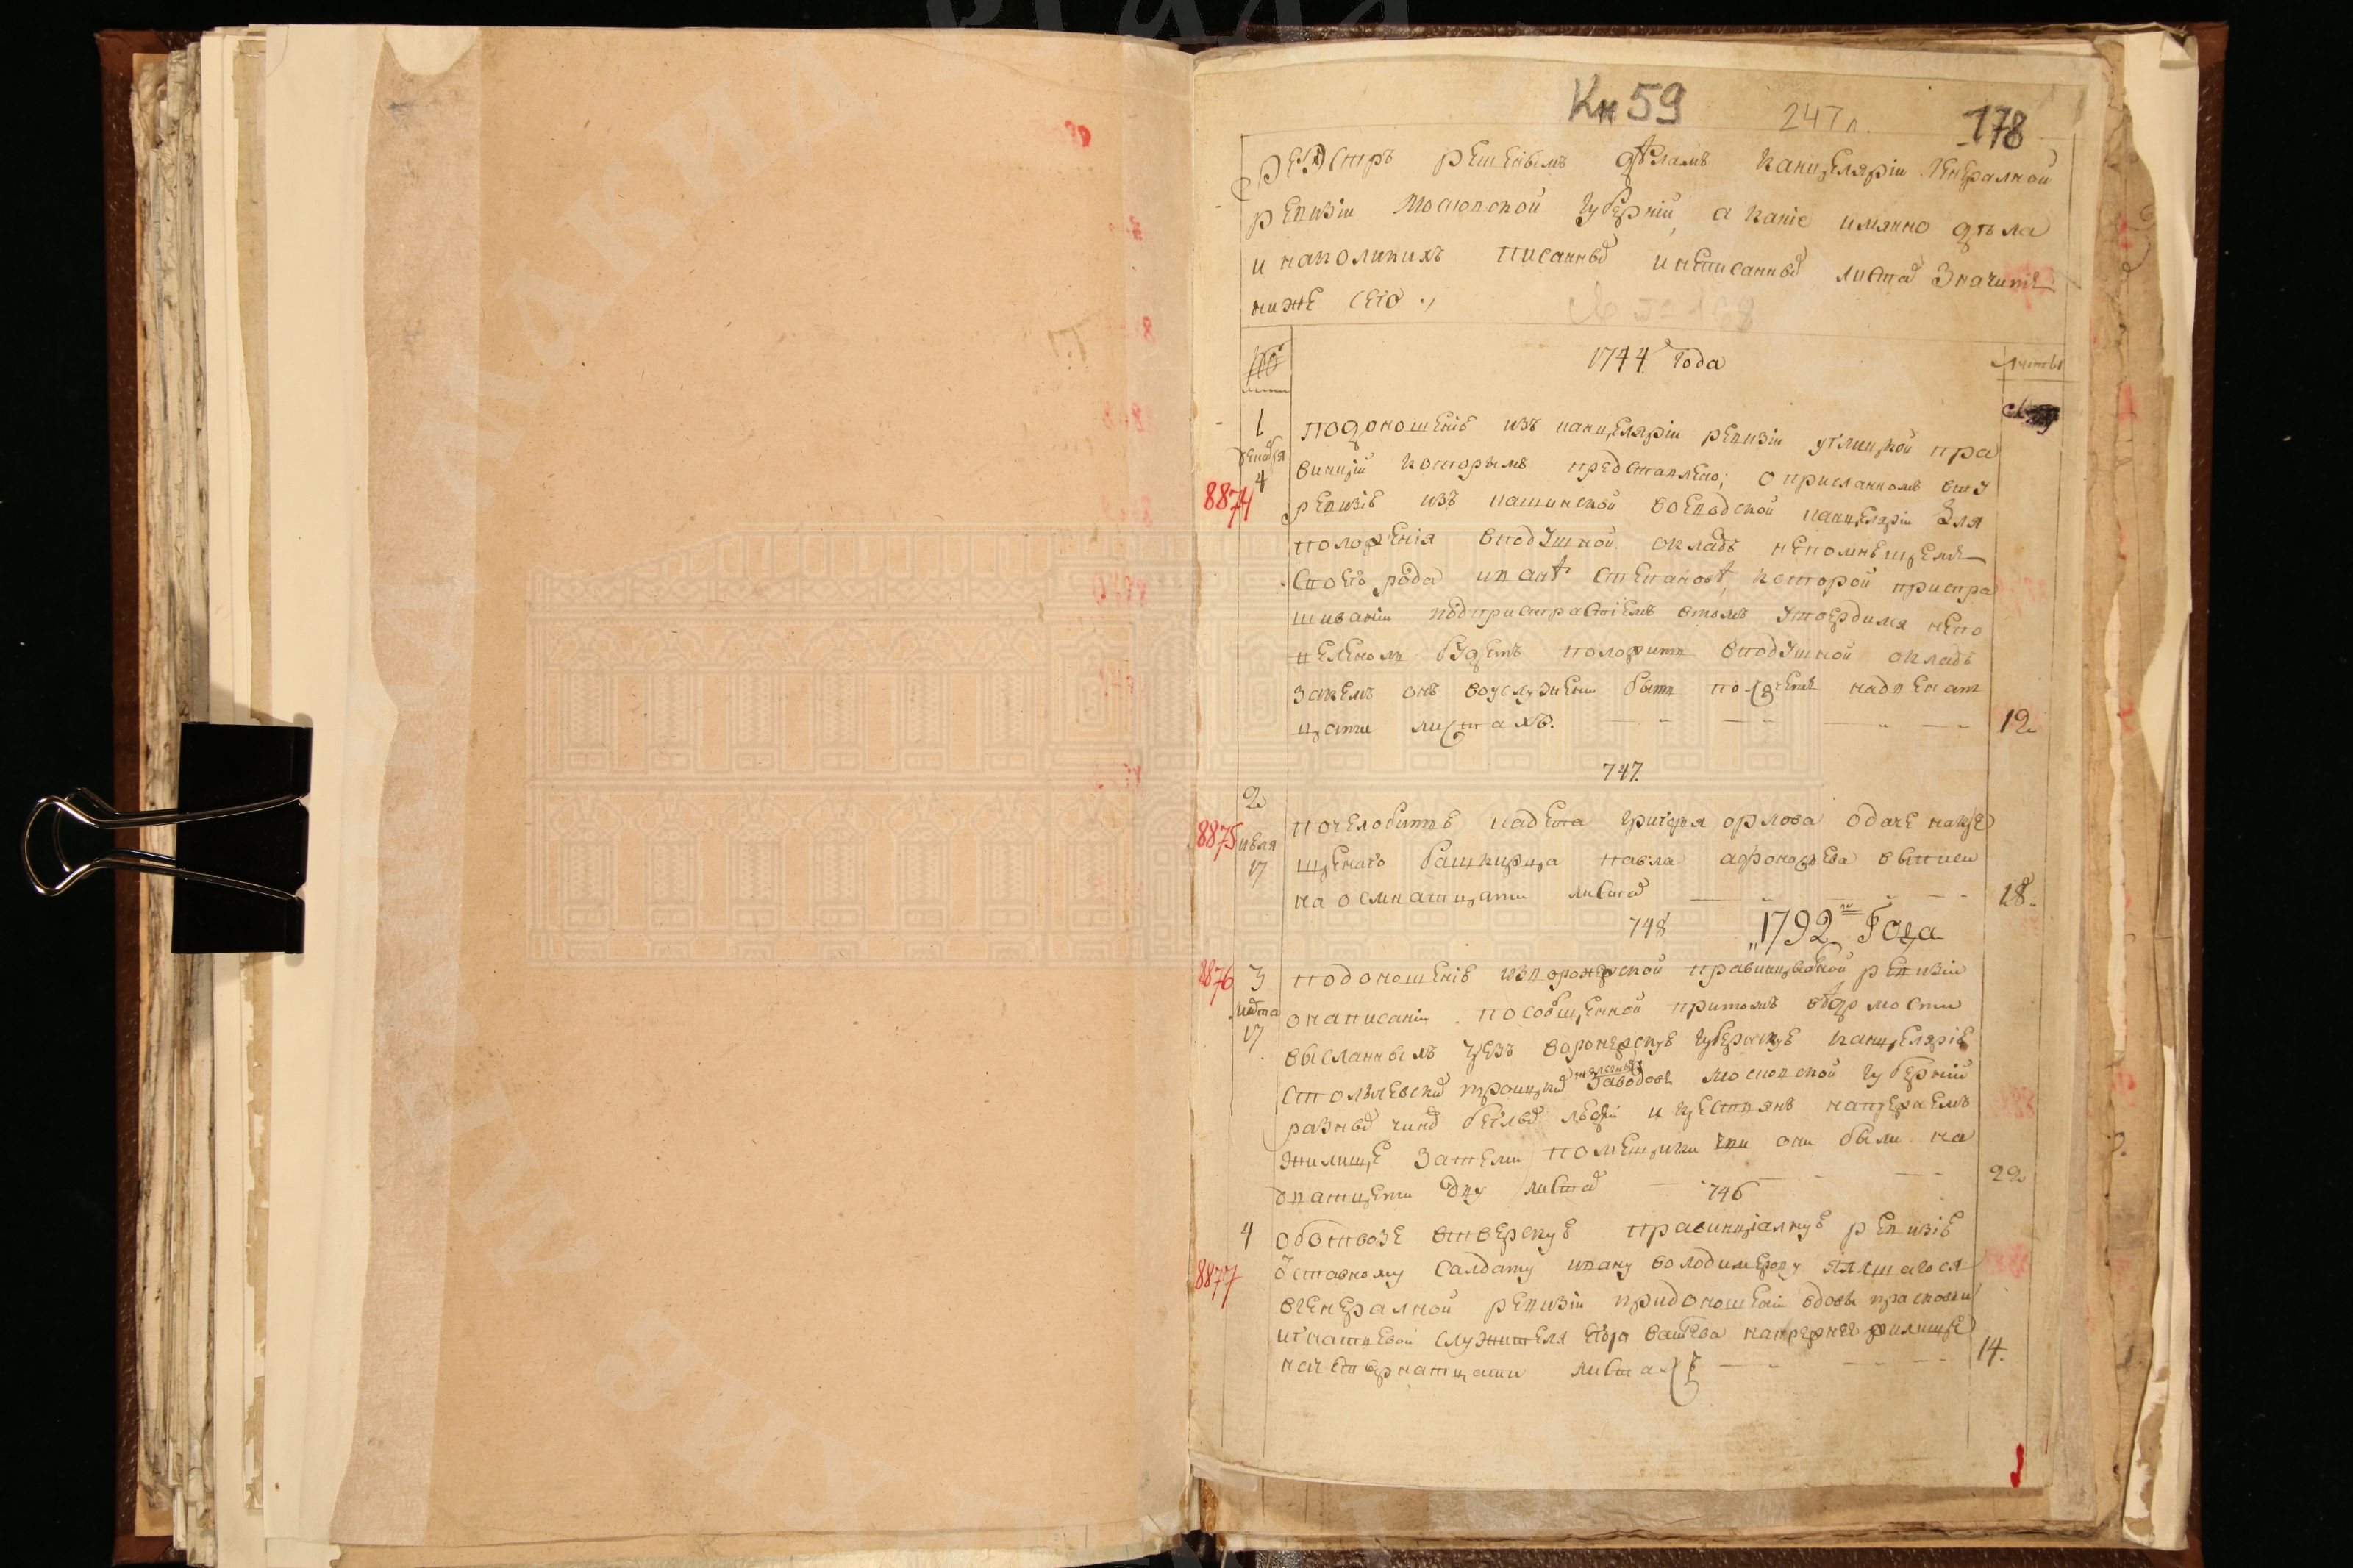 Кн 59 247 л. 178
Реэстръ решенымъ дѣламъ канцеляріи генералной
ревизіи Московской губерніи, а какіе имянно дѣла
и наколикихъ писанных инеписанных листах значитъ
ниже сего
№ 1744 года листы
1 подоношенію изъ канцеляріи ревизіи углицкой пра
декабря винціи которымъ представлено; оприсланномъ вту
4
8874 ревизію изъ кашинской воеводской канцеляріи для
положенія вподушной окладъ непомнещемъ
своего рода иванѣ степановѣ, которой приспра
шиваніи подпристрастіемъ втомъ утвердился непо
велено ль будетъ положить вподушной окладъ
закемъ онъ вуслужении быть надвенат
цати листахъ. 12
747.
2 почелобитью кадета григорья орлова одаче накре
8875 июля щенаго башкирца павла выписи
17 на осмнатцати листах 18.
748 1792 го Года
8876 3 подоношенію изворонежской правинциалной ревизіи
марта онаписаніи пособщенной притомъ вѣдомости
17 высланныхъ чрезъ воронежскую губернскую канцелярію
троицких железных заводовъ московской губерніи
разных чинов беглых людей и крестьянъ напрежнемъ
жилище затеми помещики чьи они были на
дватцети дву листах 22
746
4 оботвозе втверскую правинціалную ревизію
8877 отставному салдату ивану володимерову явшагося
вгенералной ревизіи придоношеніи вдовы прасковьи
игнатьевой служителя егора напрежнее жилище
начетырнатцати листахъ 14.